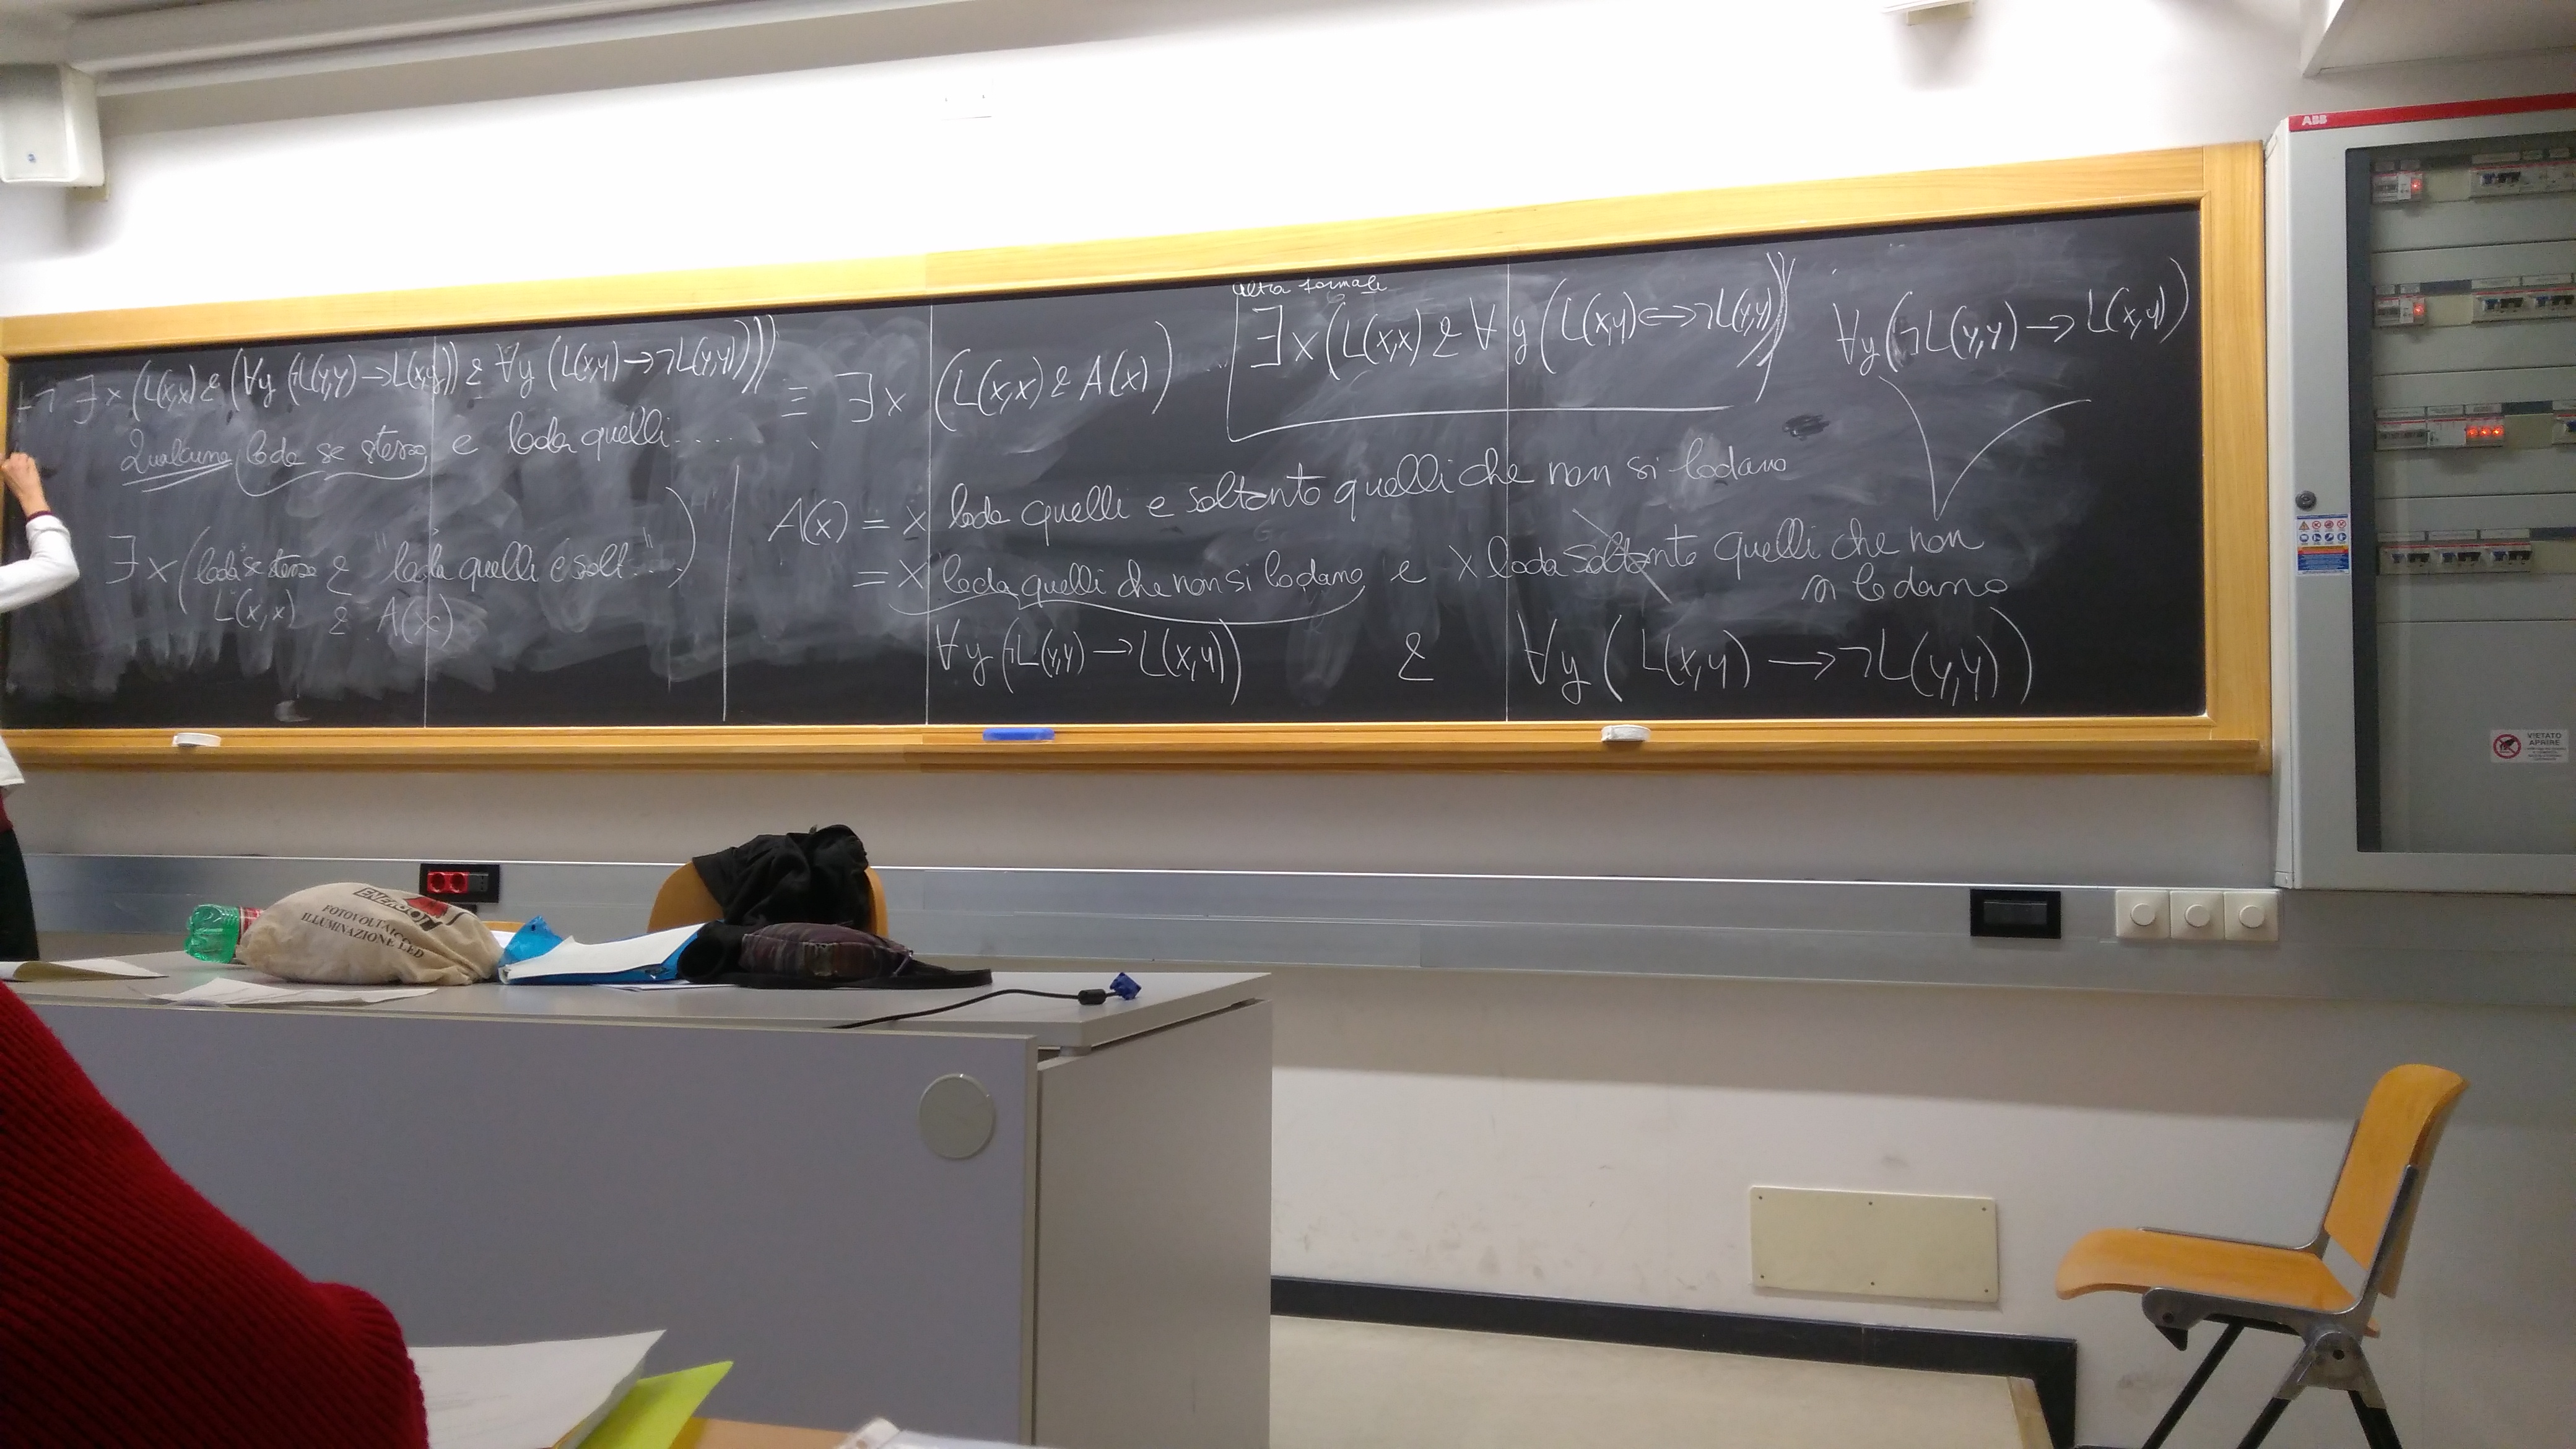 ⊢ ¬ ∃x (L(x,x) & (∀y (¬L(y,y) → L(x,y)) & ∀y (L(x,y) → ¬L(y,y))))
Qualcuno loda se stesso e loda quelli.....
∃x ("loda se stesso" & "loda quelli e solt"...)
L(x,x) & A(x)
≡ ∃x (L(x,x) & A(x))
altra formali
∃x (L(x,x) & ∀y (L(x,y) ↔ ¬L(y,y)))
∀y (¬L(y,y) → L(x,y))
A(x) = x loda quelli e soltanto quelli che non si lodano
= x loda quelli che non si lodano e x loda soltanto quelli che non
si lodano
∀y (¬L(y,y) → L(x,y)) & ∀y (L(x,y) → ¬L(y,y))
ABB
VIETATO
APRIRE
FOTOVOLTAICO
ILLUMINAZIONE LED